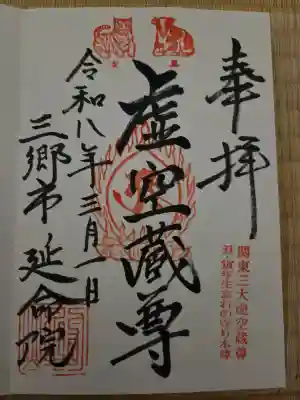 奉拝
関東三大虚空蔵尊
丑・寅年生まれの守り本尊
虚空蔵尊
令和八年三月一日
三郷市 延命院